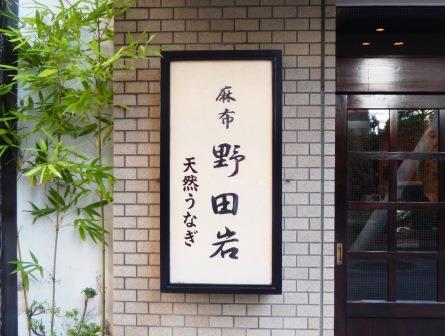 麻布
野田岩
天然うなぎ